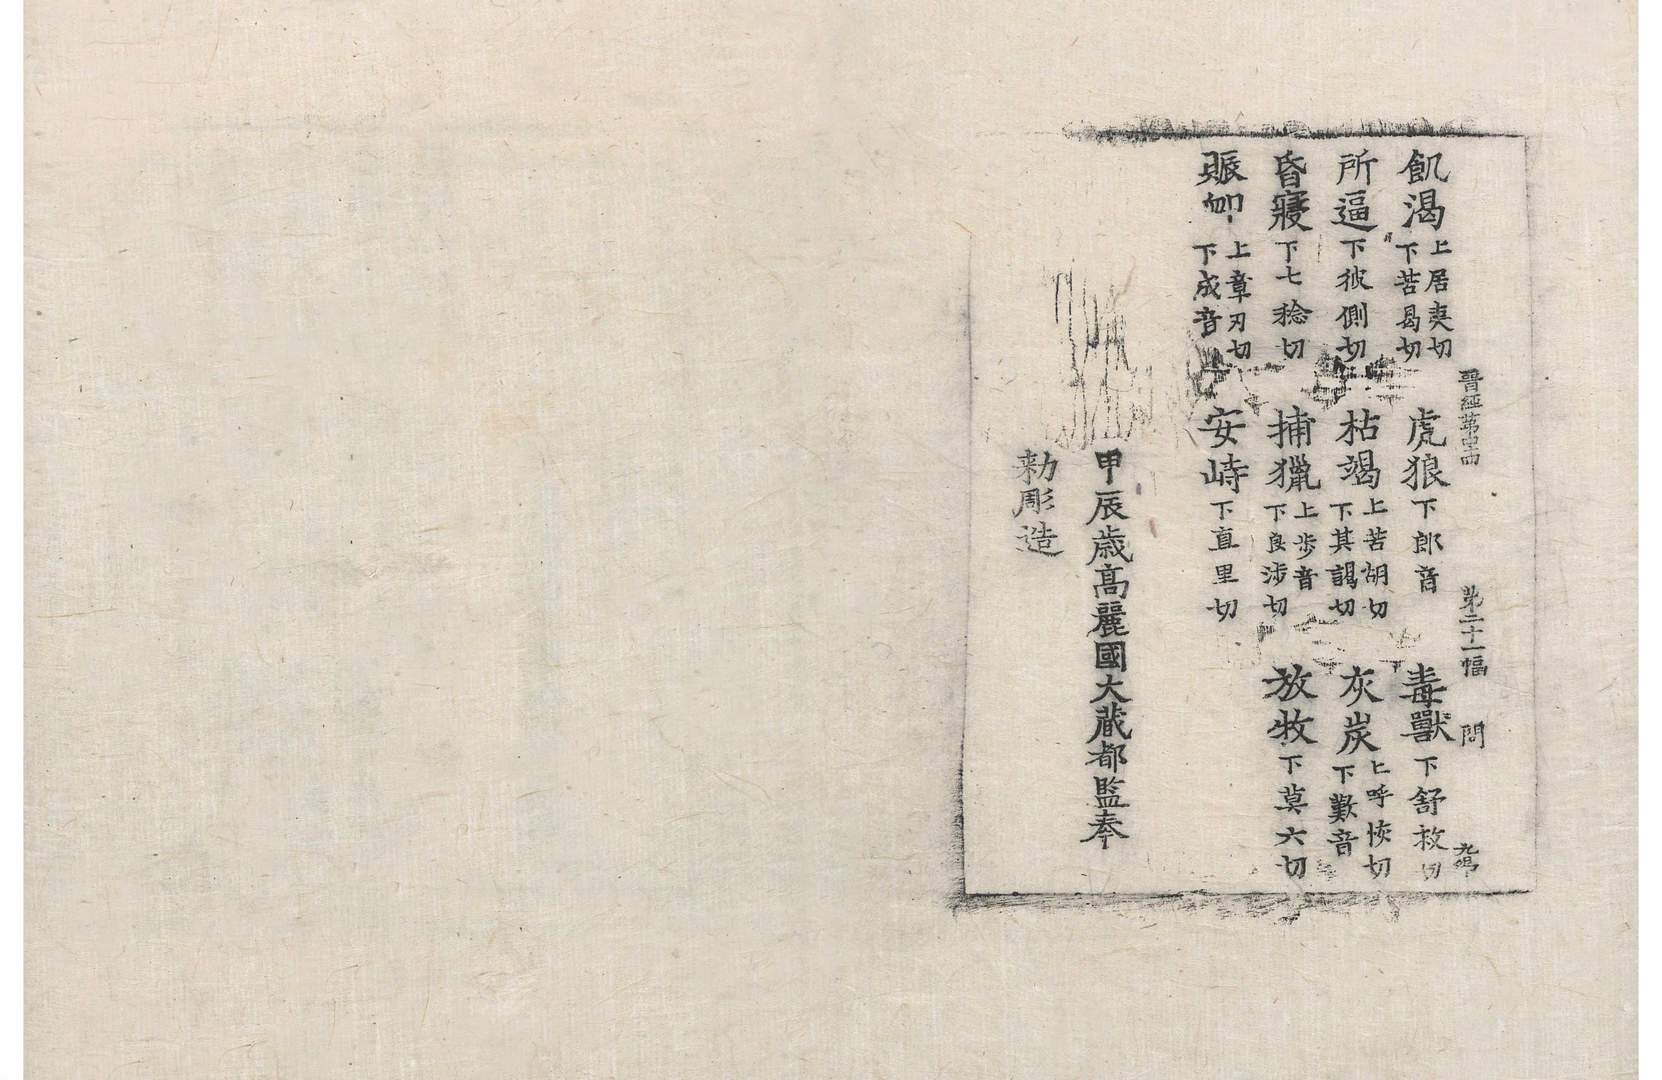 晋經第四 第二十一幅 問
飢渴上居夷切下苦曷切 虎狼下郎音 毒獸下舒救切
所逼下彼側切 枯竭上苦胡切下其謁切 灰炭上呼恢切下歎音
昏寢下七稔切 捕獵上步音下良涉切 放牧下莫六切
賑卹上章刃切下成音 安峙下直里切
甲辰歲高麗國大藏都監奉
勅彫造